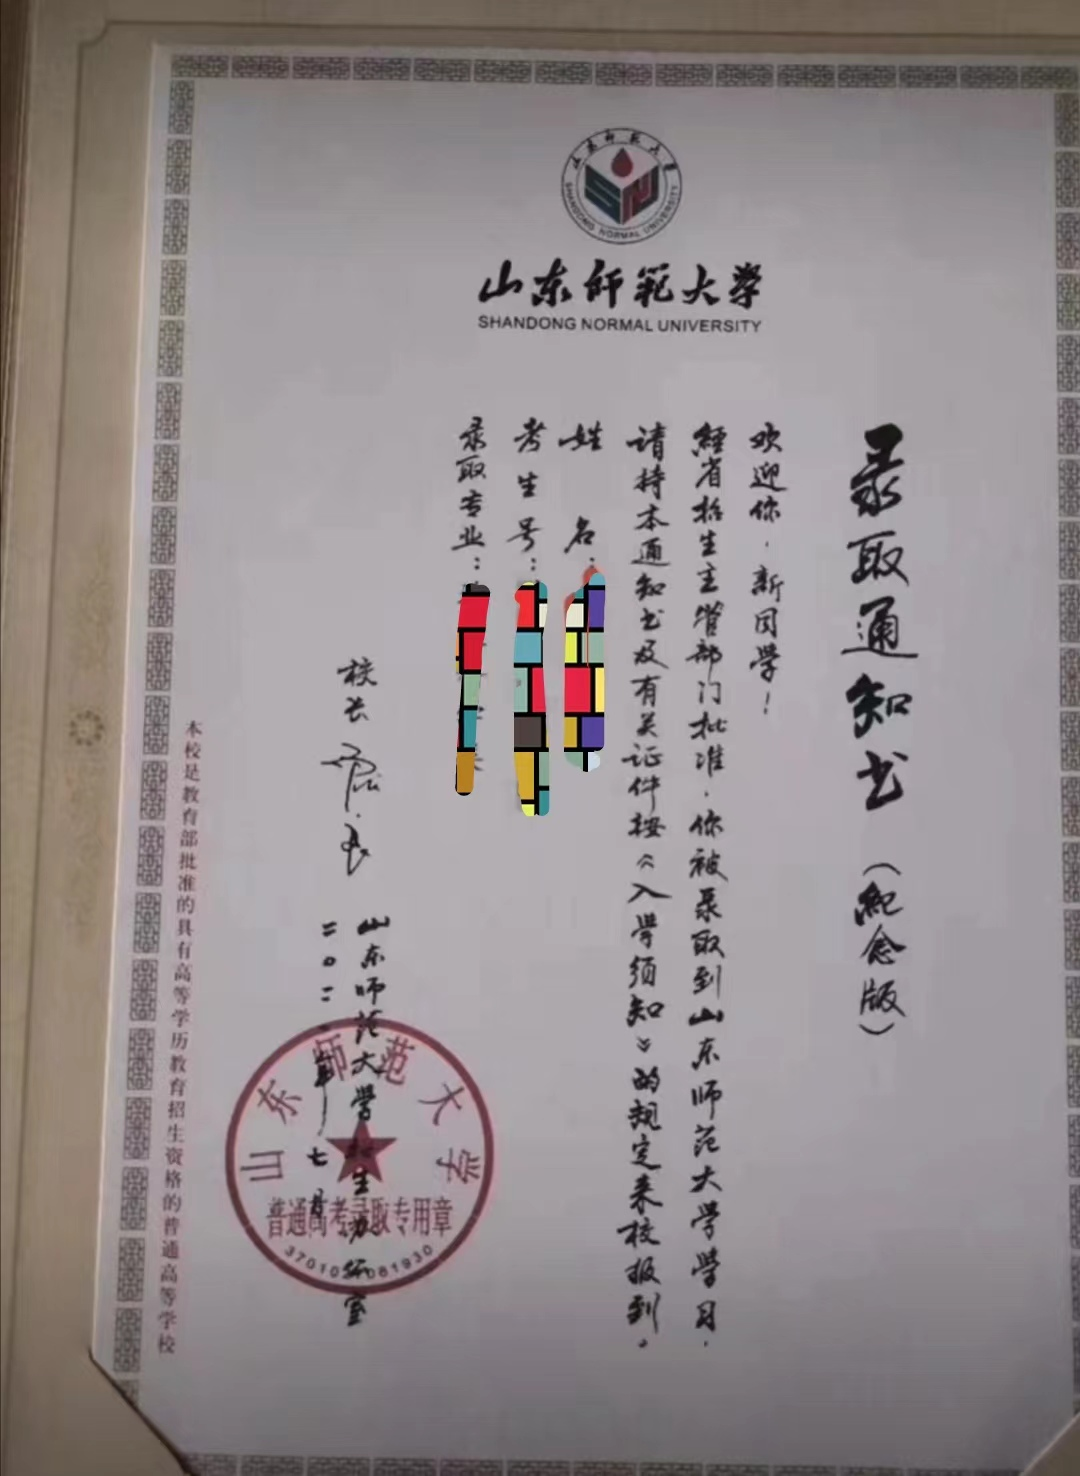 山东师范大学
SHANDONG NORMAL UNIVERSITY
山东師範大学
SHANDONG NORMAL UNIVERSITY
录取通知书（紀念版）
欢迎你，新同学！
经省招生主管部门批准，你被录取到山东师范大学学习，
请持本通知书及有关证件按《入学须知》的规定来校报到。
姓 名：
考生号：
录取专业：
校长
山东师范大学招生办公室
年七月
山东师范大学
普通高考录取专用章
本校是教育部批准的具有高等学历教育招生资格的普通高等学校